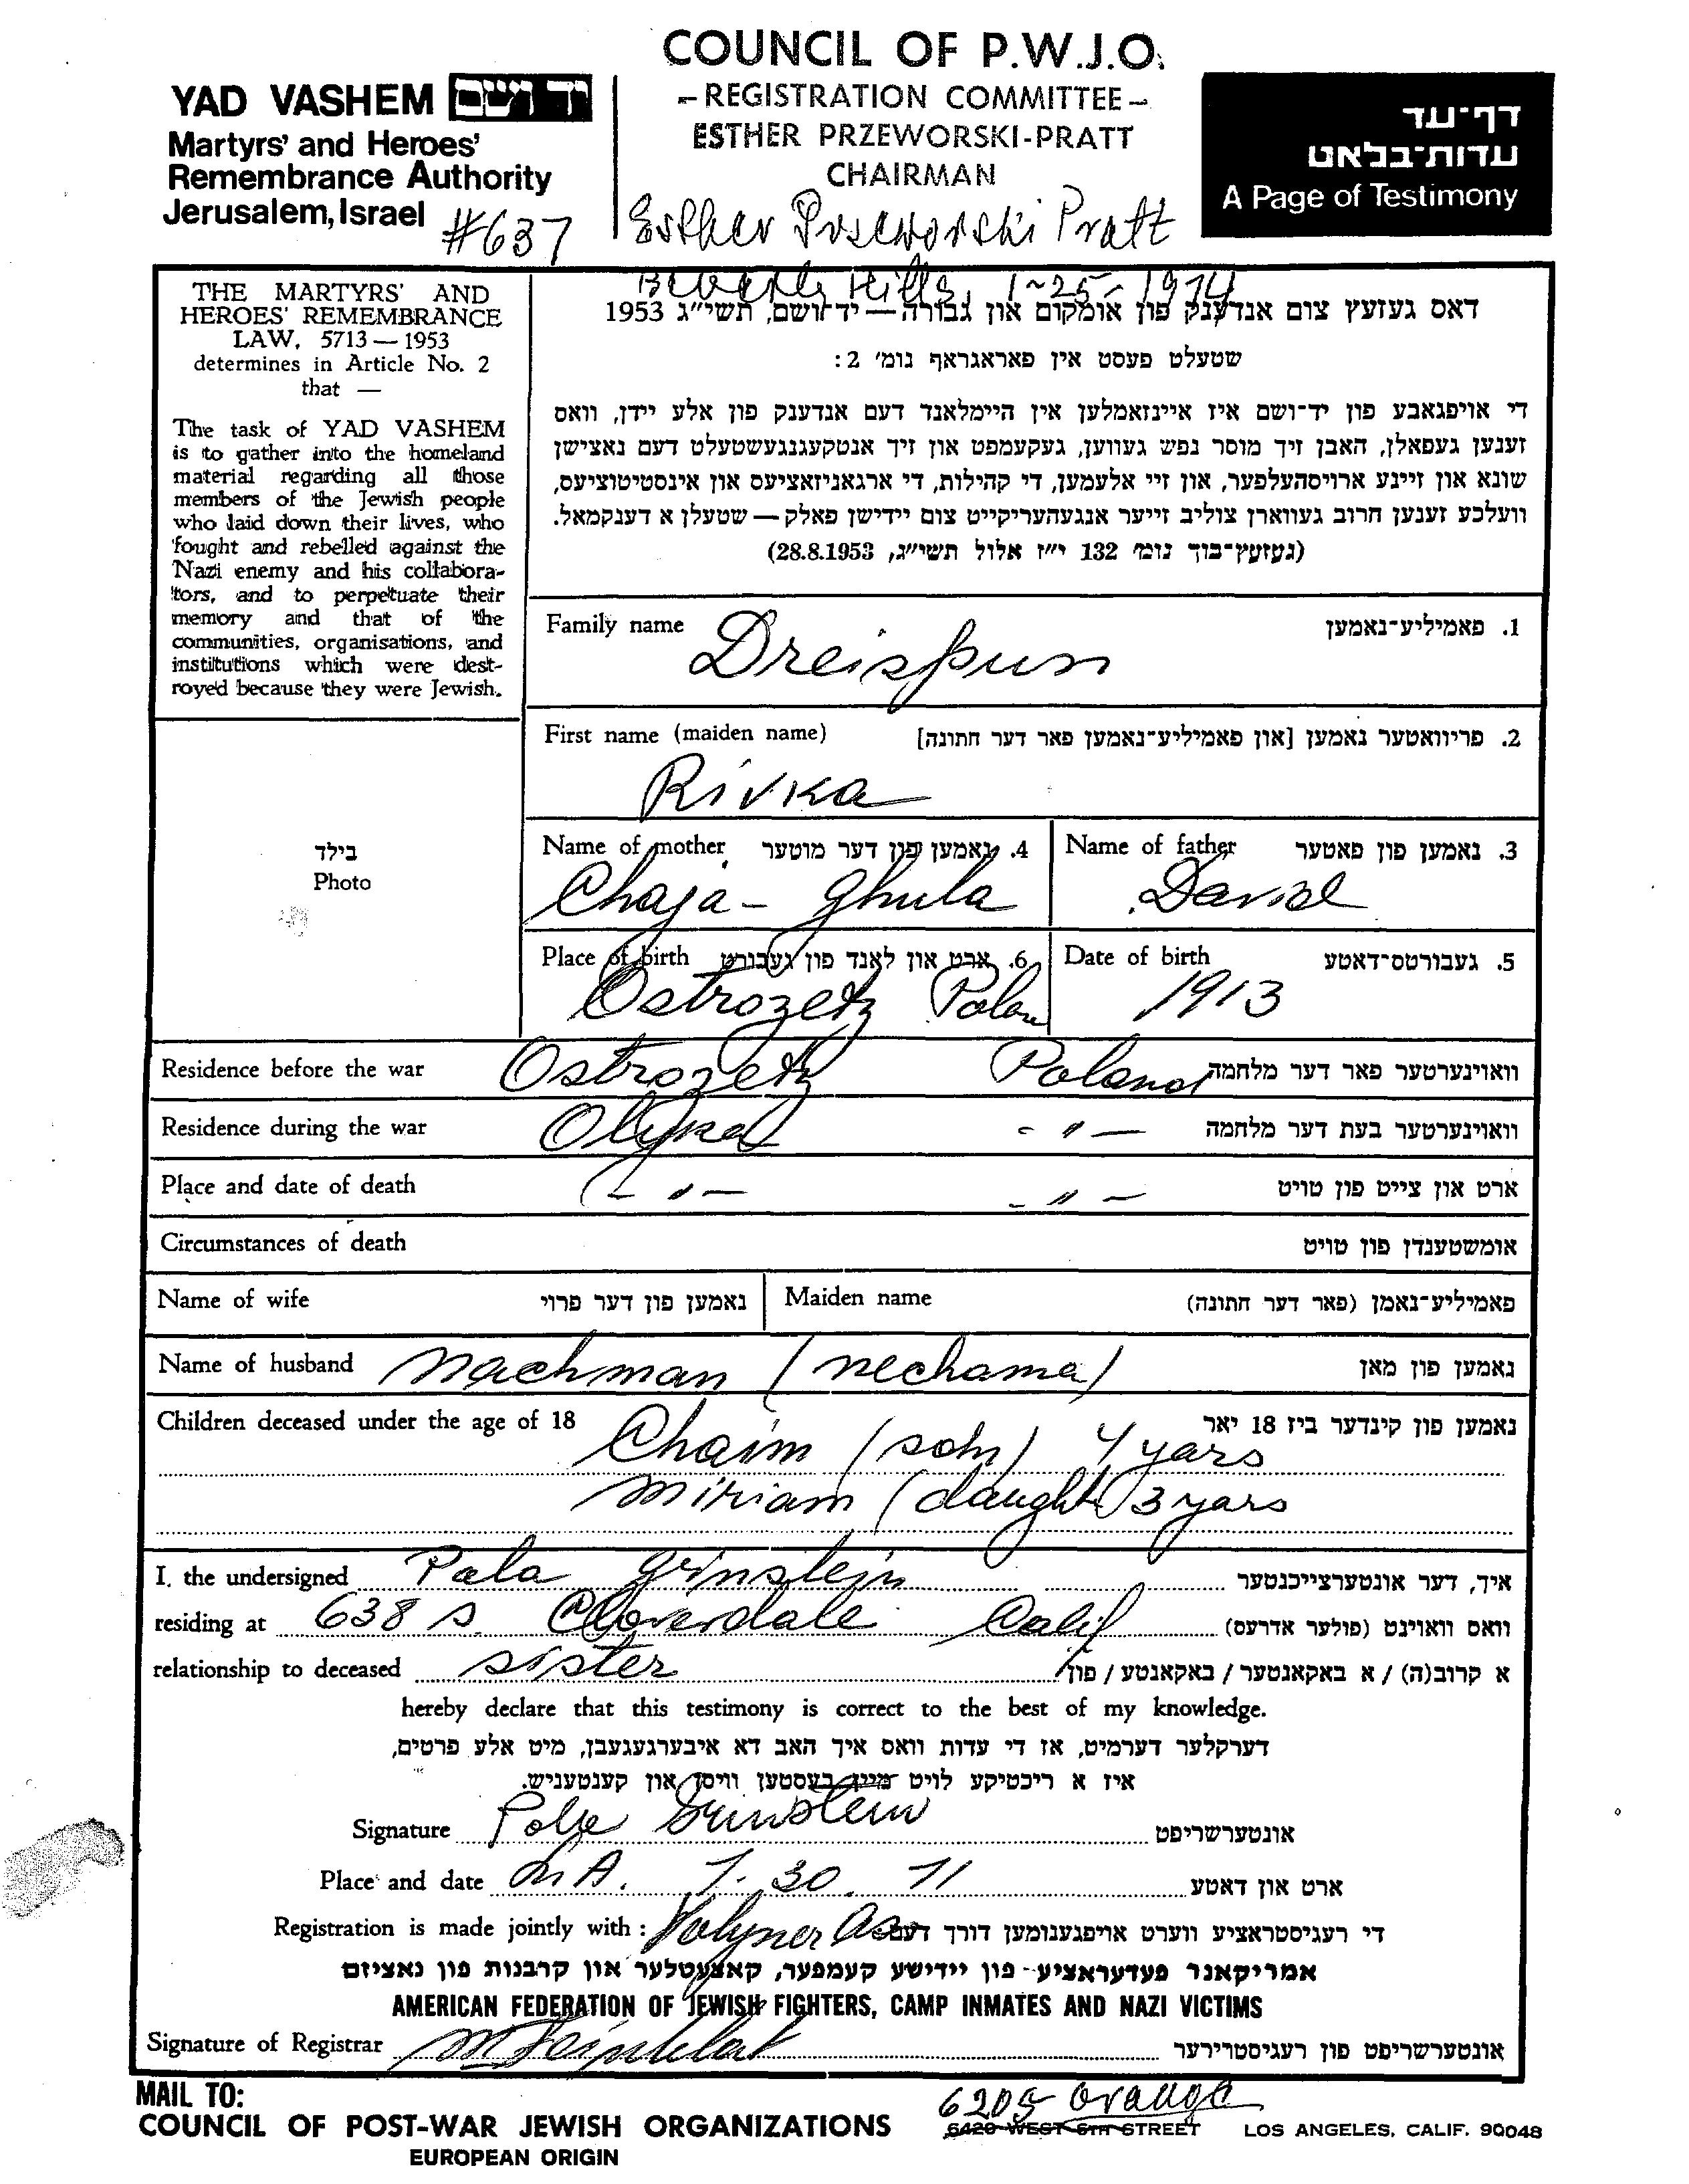 COUNCIL OF P.W.J.O.
– REGISTRATION COMMITTEE –
ESTHER PRZEWORSKI-PRATT
CHAIRMAN
Esther Przeworski Pratt
Beverly Hills, 1-25-1974
YAD VASHEM יד ושם
Martyrs' and Heroes'
Remembrance Authority
Jerusalem, Israel #637
דף-עד
עדות-בלאט
A Page of Testimony
THE MARTYRS' AND
HEROES' REMEMBRANCE
LAW, 5713 — 1953
determines in Article No. 2
that —
The task of YAD VASHEM
is to gather into the homeland
material regarding all those
members of the Jewish people
who laid down their lives, who
fought and rebelled against the
Nazi enemy and his collabora-
tors, and to perpetuate their
memory and that of the
communities, organisations, and
institutions which were dest-
royed because they were Jewish.
דאס געזעץ צום אנדענק פון אומקום און גבורה — יד ושם, תשי"ג 1953
שטעלט פעסט אין פאראגראף נומ' 2:
די אויפגאבע פון יד-ושם איז איינזאמלען אין היימלאנד דעם אנדענק פון אלע יידן, וואס
זענען געפאלן, האבן זיך מוסר נפש געווען, געקעמפט און זיך אנטקעגנגעשטעלט דעם נאצישן
שונא און זיינע ארויסהעלפער, און זיי אלעמען, די קהילות, די ארגאניזאציעס און אינסטיטוציעס,
וועלכע זענען חרוב געווארן צוליב זייער אנגעהעריקייט צום יידישן פאלק — שטעלן א דענקמאל.
(געזעץ-בוך נומ' 132 י"ז אלול תשי"ג, 28.8.1953)
Family name Dreispun 1. פאמיליע-נאמען
First name (maiden name) 2. פריוואטער נאמען [און פאמיליע-נאמען פאר דער חתונה]
Rivka
בילד
Photo
Name of mother 4. נאמען פון דער מוטער Name of father 3. נאמען פון פאטער
Chaja - Ghula David
Place of birth 6. ארט און לאנד פון געבורט Date of birth 5. געבורטס-דאטע
Ostrozetz 1913
Residence before the war Ostrozetz Poland וואוינערטער פאר דער מלחמה
Residence during the war Olyka - " — וואוינערטער בעת דער מלחמה
Place and date of death - " — - " — ארט און צייט פון טויט
Circumstances of death אומשטענדן פון טויט
Name of wife נאמען פון דער פרוי Maiden name פאמיליע-נאמן (פאר דער חתונה)
Name of husband Nachman (Nechama) נאמען פון מאן
Children deceased under the age of 18 נאמען פון קינדער ביז 18 יאר
Chaim (son) 4 yars
Miriam (daught) 3 yars
I, the undersigned Pola Grinstein איד, דער אונטערצייכנטער
residing at 638 S. Cloverdale Calif וואס וואוינט (פולער אדרעס)
relationship to deceased sister א קרוב(ה) / א באקאנטער / באקאנטע / פון
hereby declare that this testimony is correct to the best of my knowledge.
דערקלער דערמיט, אז די עדות וואס איך האב דא איבערגעגעבן, מיט אלע פרטים,
איז א ריכטיקע לויט מיין בעסטען וויסן און קענטעניש.
Signature Pola Grinstein אונטערשריפט
Place and date 7. 30. 71 ארט און דאטע
Registration is made jointly with: Volyner די רעגיסטראציע ווערט אויפגענומען דורך דעם
אמריקאנר פעדעראציע - פון יידישע קעמפער, קאצעטלער און קרבנות פון נאציזם
AMERICAN FEDERATION OF JEWISH FIGHTERS, CAMP INMATES AND NAZI VICTIMS
Signature of Registrar אונטערשריפט פון רעגיסטרירער
MAIL TO:
COUNCIL OF POST-WAR JEWISH ORGANIZATIONS
EUROPEAN ORIGIN
6205 Orange
6420 WEST 6TH STREET LOS ANGELES, CALIF. 90048